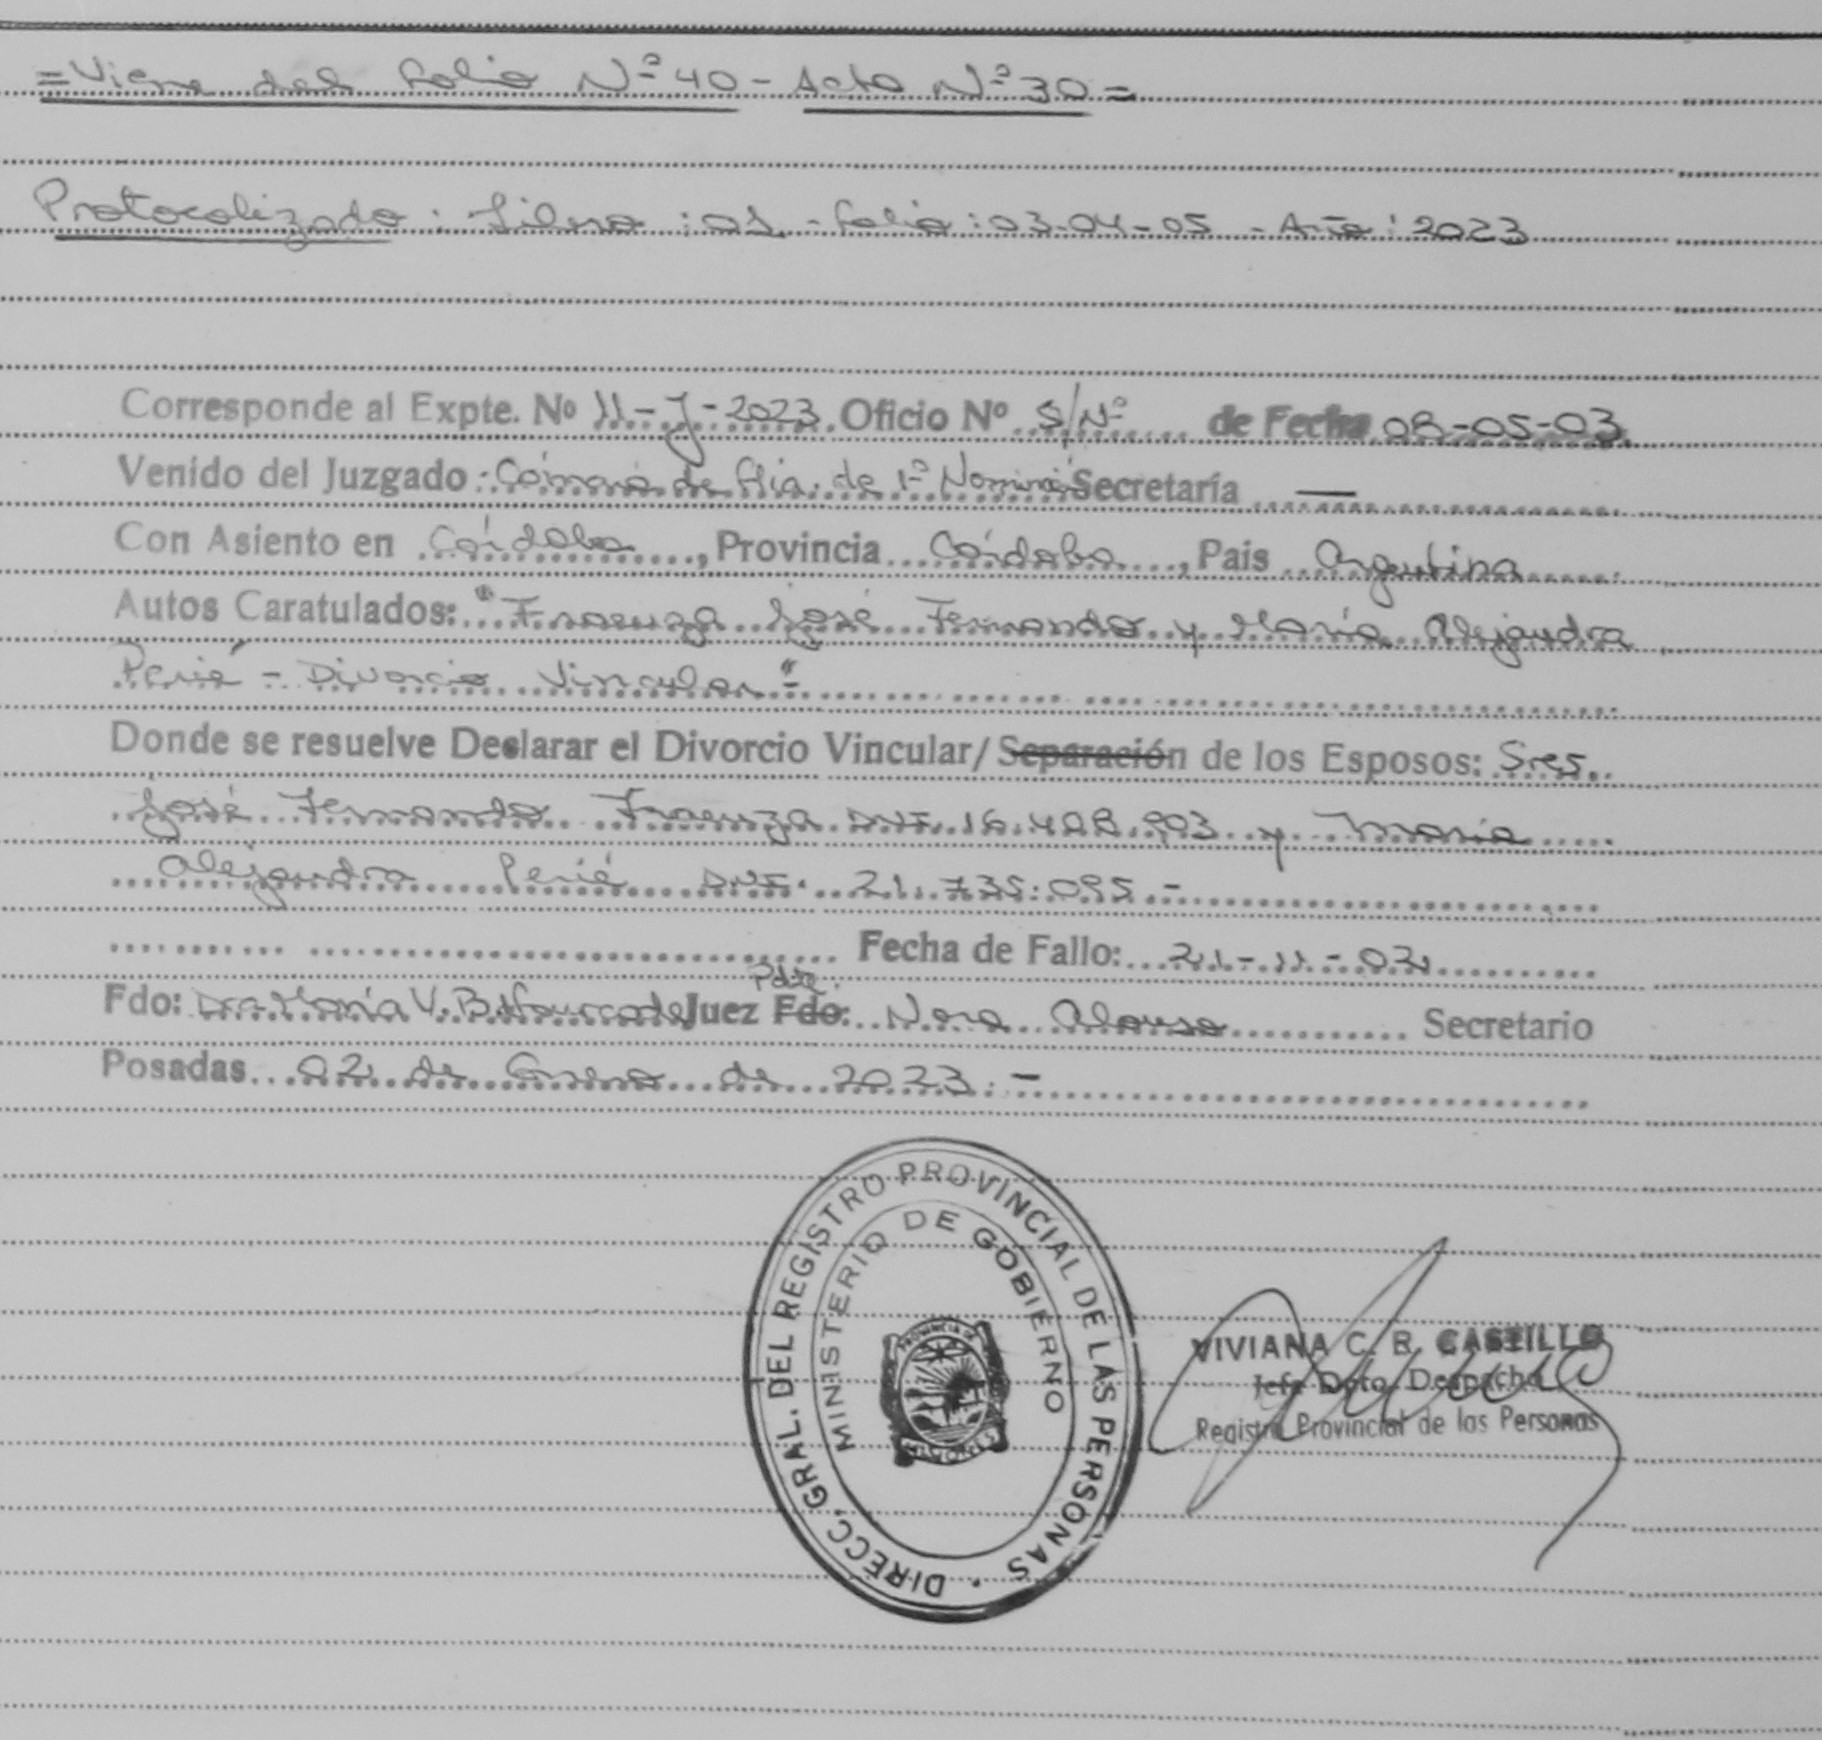 =Viene del folio Nº 40 - Acta Nº 30=
Protocolizado: Libro: 01 - folio: 03-04-05 - Año: 2023
Corresponde al Expte. Nº 11-J-2023 Oficio Nº S/Nº de Fecha 08-05-03
Venido del Juzgado: Cámara de Flia. de 1ª Nominá Secretaría —
Con Asiento en Córdoba, Provincia Córdoba, Pais Argentina
Autos Caratulados: "Fraenza José Fernando y María Alejandra
Perié - Divorcio Vincular"-
Donde se resuelve Deslarar el Divorcio Vincular/Separación de los Esposos: Sres.
José Fernando Fraenza DNI. 16.408.903 y María
Alejandra Perié DNI. 21.735.095.-
Fecha de Fallo: 21-11-02
Pdte.
Fdo: Dra. María V. B. Juez Fdo: Nora Alonso Secretario
Posadas 02 de Enero de 2023.-
DIRECC. GRAL. DEL REGISTRO PROVINCIAL DE LAS PERSONAS
MINISTERIO DE GOBIERNO
PROVINCIA DE
MISIONES
VIVIANA C. B. CASTILLO
Jefe Dpto. Despacho
Registro Provincial de las Personas